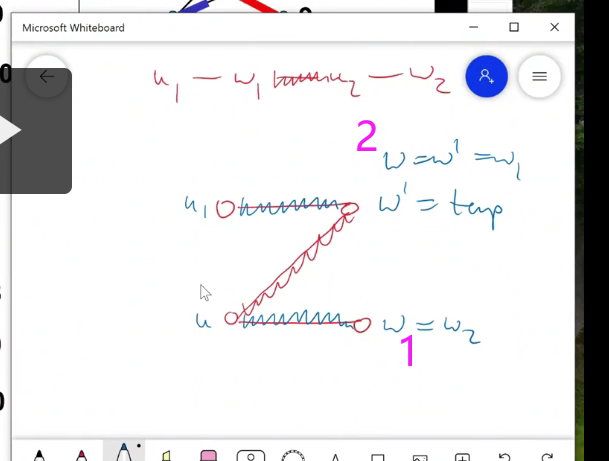 Microsoft Whiteboard
u₁ — w₁ u₂ — w₂
2
w = w' = w₁
u₁ w' = temp
u w = w₂
1